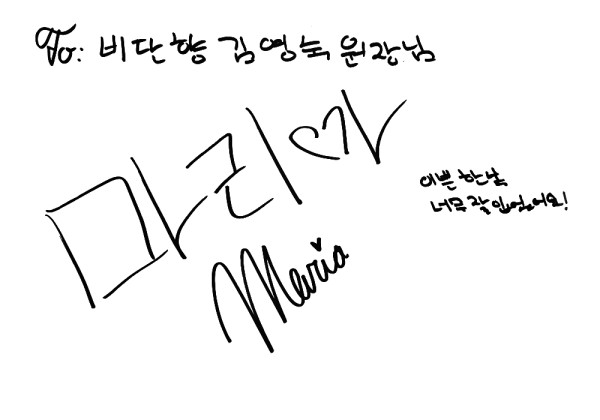 To: 비단향 김영숙 원장님
마리아
Maria
이쁜 한복
너무 잘 입었어요!